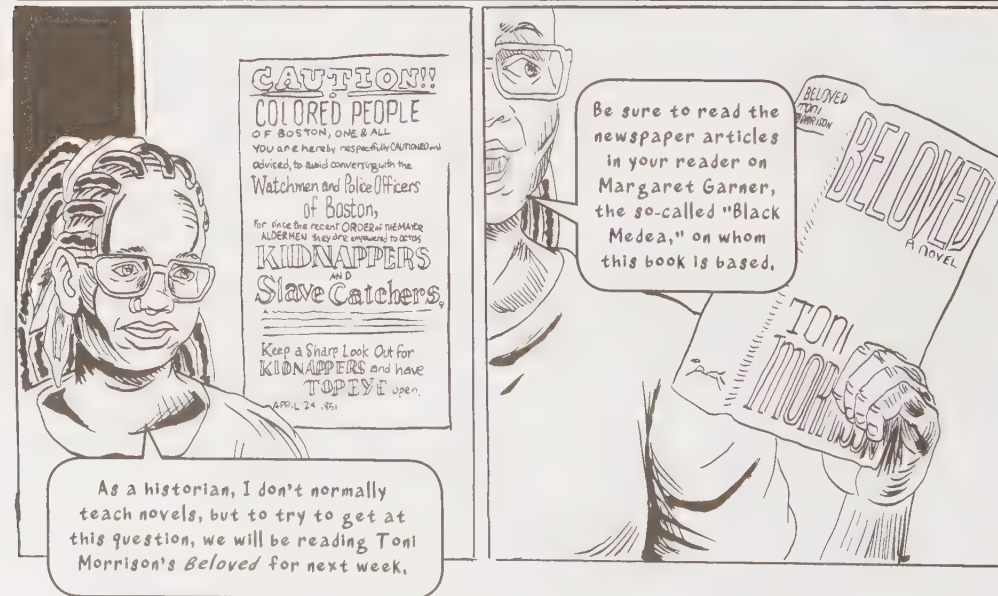 CAUTION!!
COLORED PEOPLE
OF BOSTON, ONE & ALL
YOU are hereby respectfully CAUTIONED and
advised, to avoid conversing with the
Watchmen and Police Officers
of Boston,
For since the recent ORDER of THE MAYOR
ALDERMEN they are empowered to act as
KIDNAPPERS
AND
Slave Catchers,
Keep a Sharp Look Out for
KIDNAPPERS and have
TOP EYE open,
APRIL 24 1851
As a historian, I don't normally
teach novels, but to try to get at
this question, we will be reading Toni
Morrison's Beloved for next week.
Be sure to read the
newspaper articles
in your reader on
Margaret Garner,
the so-called "Black
Medea," on whom
this book is based.
BELOVED
TONI
BELOVED
A NOVEL
TONI